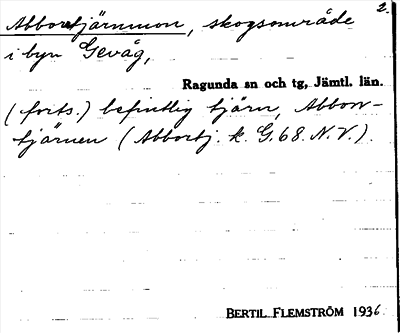 2.
Abbortjärnmon, skogsområde
i byn Gevåg,
Ragunda sn och tg, Jämtl. län.
(forts.) befintlig tjärn, Abborr-
tjärnen (Abbortj. k. G. 68. N. V.).
BERTIL FLEMSTRÖM 1936